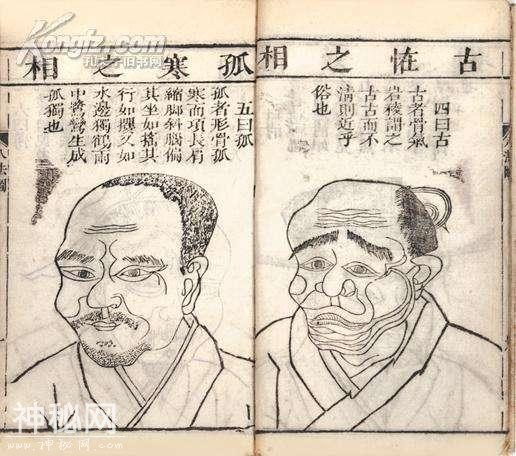 古恠之相
四曰古
古者骨氣
岩稜謂之
古古而不
清則近乎
俗也
孤寒之相
五曰孤
孤者形骨孤
寒而項長肩
縮脚斜腦偏
其坐如搖其
行如攫又如
水邊獨鶴雨
中鷺鷥生成
孤獨也
八法圖
Kongfz.com
孔夫子旧书网
神秘网